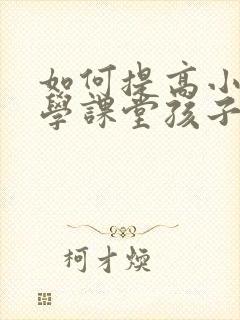 如何提高小
學課堂孩子
柯才煥